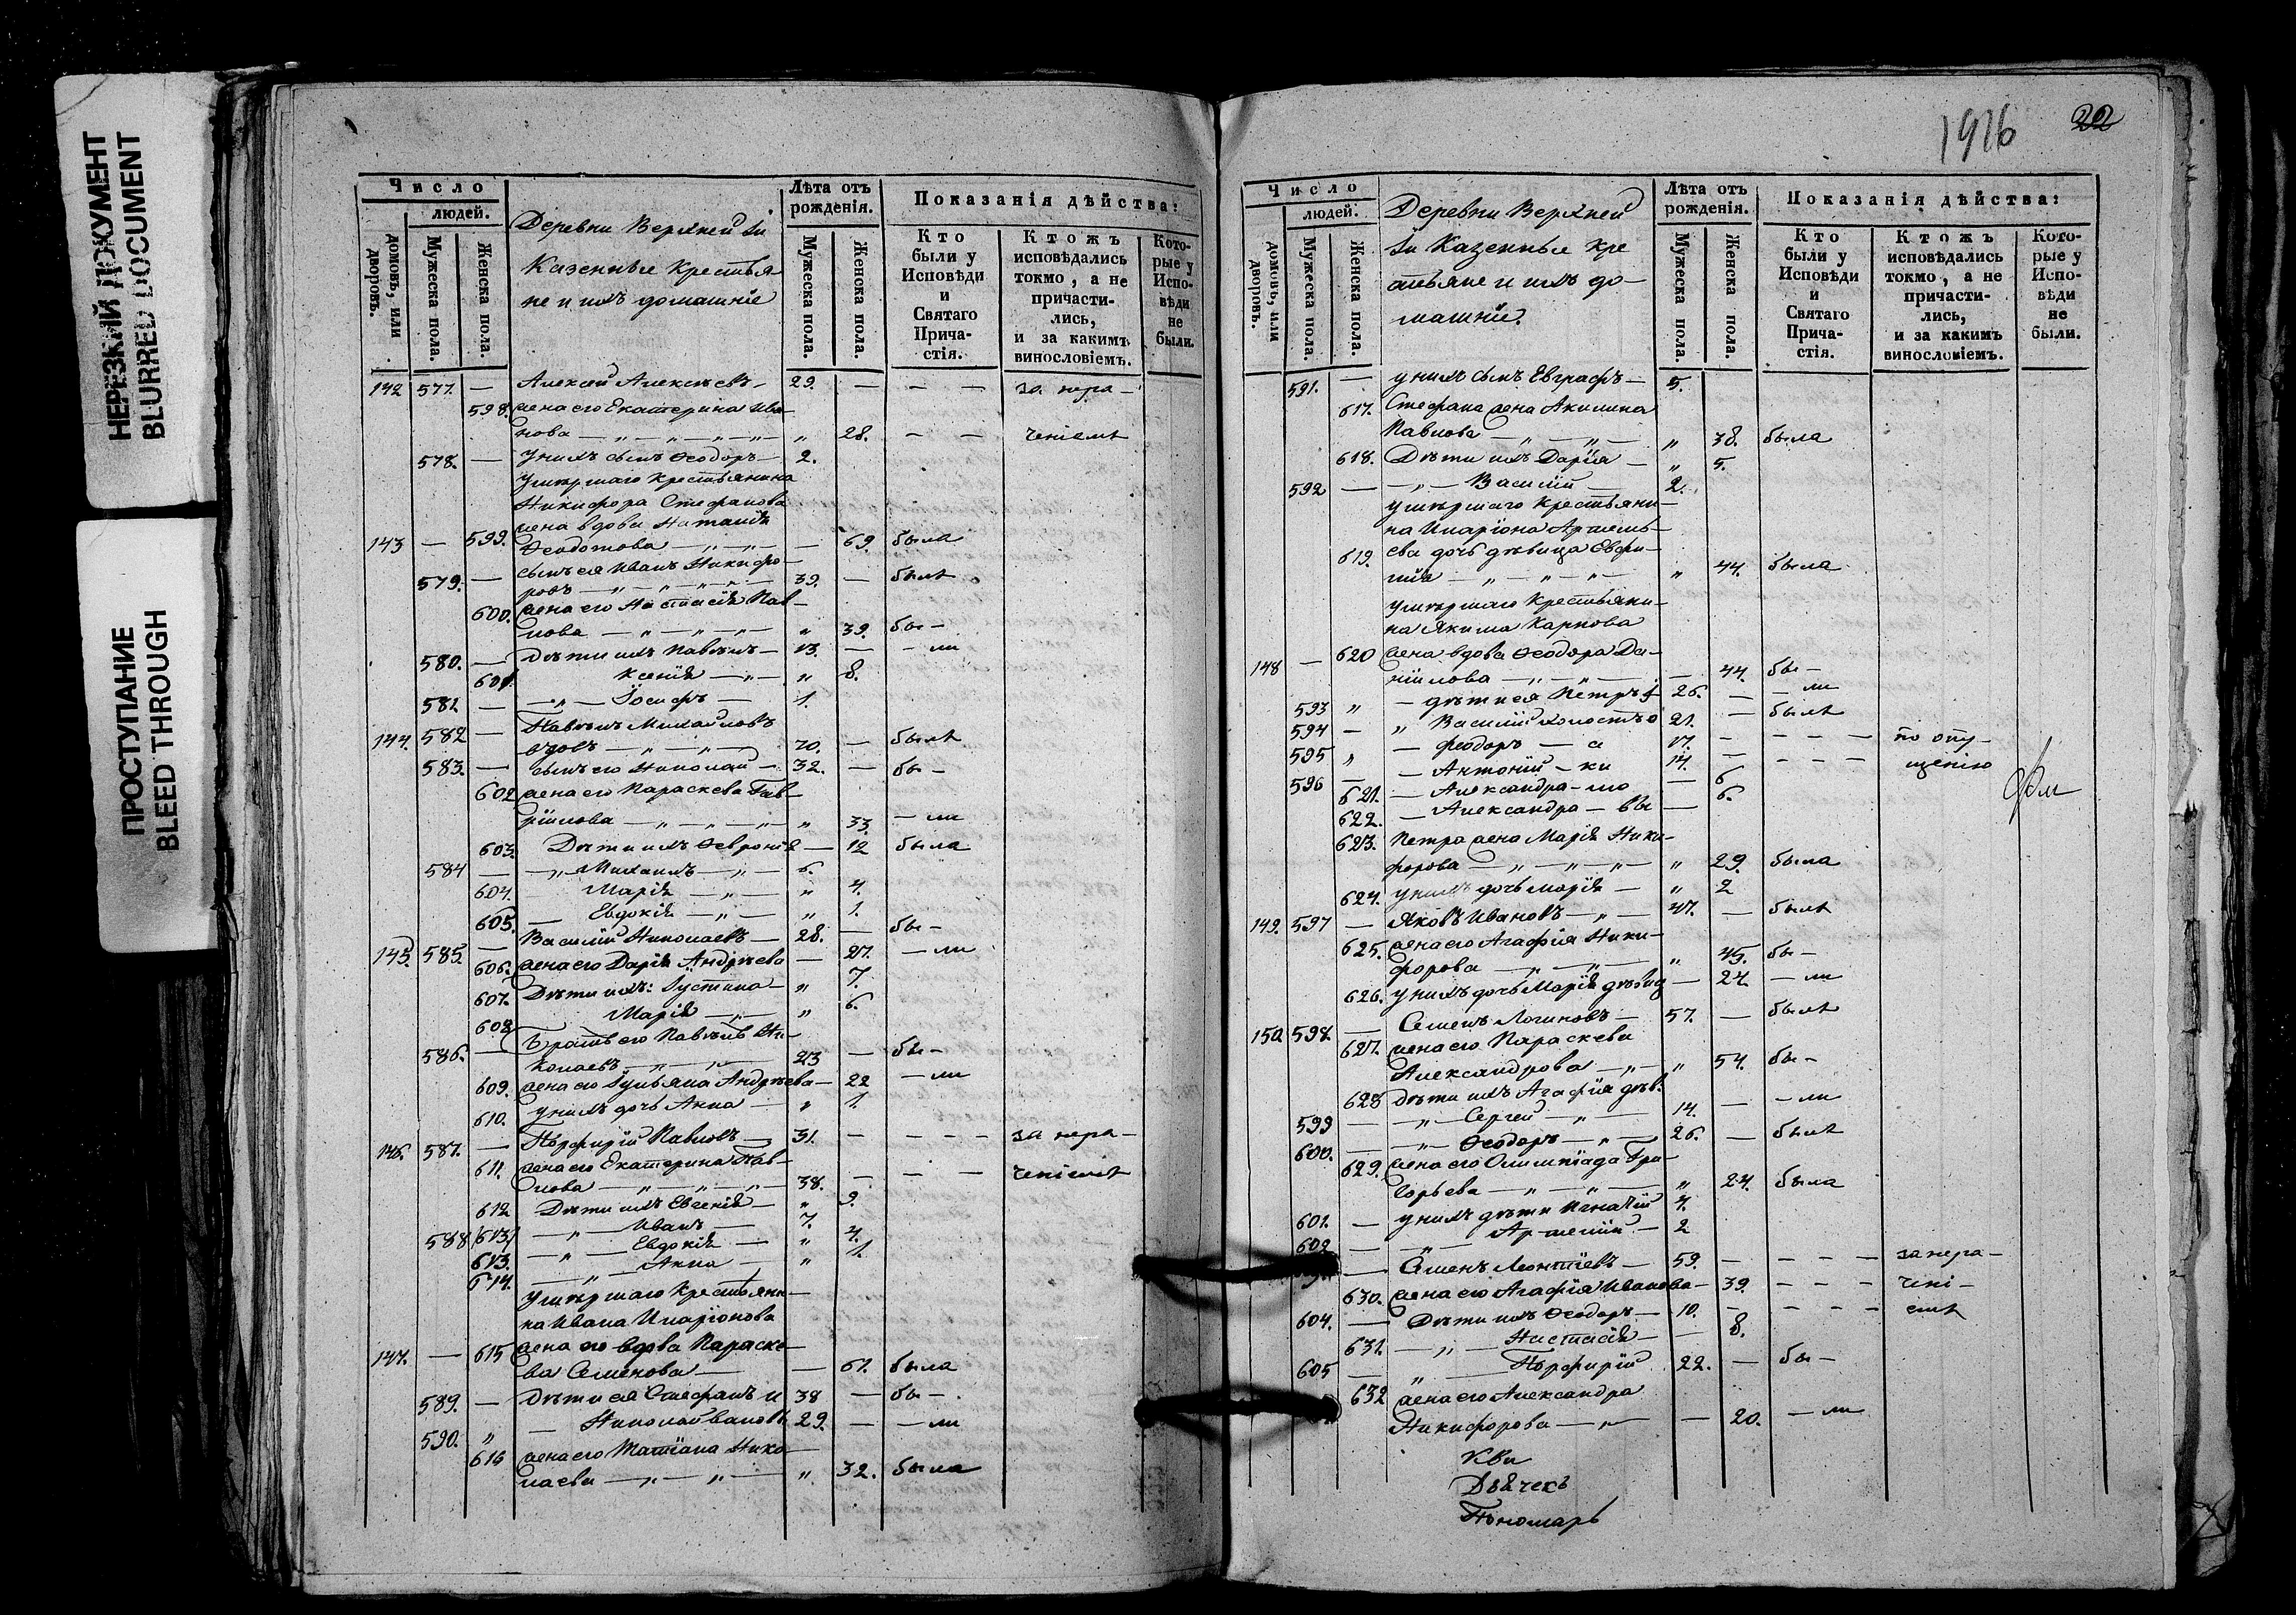 НЕРЕЗКИЙ ДОКУМЕНТ
BLURRED DOCUMENT
ПРОСТУПАНИЕ
BLEED THROUGH
Число
людей.
домовъ, или дворовъ.
Мужеска пола.
Женска пола.
Деревни Верхней
Казенные крестья
не и ихъ домашніе
Лѣта отъ рожденія.
Мужеска пола.
Женска пола.
Показанія дѣйства:
Кто были у Исповѣди и Святаго Прича-стія.
Ктожъ исповѣдались токмо, а не причасти-лись, и за какимъ винословіемъ.
Кото-рые у Испо-вѣди не были.
142 577. — Алексей Алексѣевъ — 29. — — — за нера-
598. жена его Екатерина Ива-
нова — „ — „ — „ — „ — „ 28. — — ченіемъ
578. — у нихъ сынъ Ѳеодоръ — 2.
умершаго крестьянина
Никифора Стефанова
жена вдова Наталія
143 — 599. Ѳеодотова — „ — „ — — 69. была
579. — сынъ ея Иванъ Никифо-
ровъ — „ — „ — „ — „ — 39. — былъ
600. жена его Настасія Пав-
лова — „ — „ — „ — „ 39. бы-
580. — Дѣти ихъ Павелъ — 13. — — ли
601. Ксенія — „ — „ 8.
581 — — „ — Іосифъ — 1.
144. 582 — Павелъ Михайловъ
вдовъ — „ — „ — 70. — былъ
583. — сынъ его Николай — 32. — бы-
602 жена его Параскева Гав-
рійлова — „ — „ — „ — „ 33. — ли
603. Дѣти ихъ Февронія — 12 была
584 — — „ — Михаилъ — „ — 6.
604. Марія — „ — „ 4.
605. — Евдокія — „ — „ 1.
145. 585. — Василій Николаевъ — 28. — бы-
606. жена его Дарія Андрѣева — 27. — ли
607. Дѣти ихъ: Іустина — „ 7.
608 Марія — „ — „ 6.
Братъ его Павелъ Ни-
586. — колаевъ — „ — „ — 23 — бы-
609. жена его Іуліяна Андрѣева — 22 — ли
610. у нихъ дочь Анна — „ 1.
146. 587. — Порфирій Павловъ — 31. — — — — за нера-
611. жена его Екатерина Пав-
лова — „ — „ — „ — 38. — — — ченіемъ
612 Дѣти ихъ Евгенія — „ 9.
588 613 — „ — Иванъ — 7.
613. — „ — Евдокія — „ 4.
614. — „ — Анна — „ 1.
умершаго крестьяни-
на Ивана Иларіонова
147. — 615 жена его вдова Параске-
ва Семенова — — 61. была
589. — Дѣти ея Стефанъ и 38 — бы-
590. „ — Николай Ивановъ 29. — — ли
616 жена его Татіана Нико-
лаева — „ — „ — „ 32. была
1916 22
Число
людей.
домовъ, или дворовъ.
Мужеска пола.
Женска пола.
Деревни Верхней
Казенные кре
стьяне и ихъ до-
машніе.
Лѣта отъ рожденія.
Мужеска пола.
Женска пола.
Показанія дѣйства:
Кто были у Исповѣди и Святаго Прича-стія.
Ктожъ исповѣдались токмо, а не причасти-лись, и за какимъ винословіемъ.
Кото-рые у Испо-вѣди не были.
591. — у нихъ сынъ Евграфъ — 5.
617. Стефана жена Акилина
Павлова — „ — „ — „ 38. была
618. Дѣти ихъ Дарія — „ 5.
592 — — „ — Василій — 2.
умершаго крестьяни-
на Иларіона Артемь-
619. ева дочь дѣвица Евфи-
мія — „ — „ — „ — „ 44. была
умершаго крестьяни-
на Якима Карпова
148 — 620 жена вдова Ѳеодора Да-
ніилова — „ — „ — „ — — 44. бы-
593 „ — дѣти ея Петръ 26. — — ли
594 — „ Василій холостъ 21. — былъ
595 „ — Феодоръ — 17. — — — — по опу-
596 — — Антоній — 14. — — — — щенію
621. — Александра — — 6
622. — Александра — — 6.
623. Петра жена Марія Ники-
форова — „ — „ — „ — „ 29. была
624. у нихъ дочь Марія — „ 2
149. 597 — Яковъ Ивановъ — „ — 47. — былъ
625. жена его Агафія Ники-
форова — „ — „ — „ 45. бы-
626. у нихъ дочь Марія дѣвиц — 24 — ли
150. 598. — Семенъ Логиновъ — 57. — былъ
627. жена его Параскева
Александрова — „ — „ 54. бы-
628 дѣти ихъ Агафія дѣв.
599 — „ — Сергей — „ — 14. — — ли
600. — „ — Ѳеодоръ — „ — 26. — былъ
629. жена его Олимпіада Гри-
горьева — „ — „ — „ 24. была
601. — у нихъ дѣти Игнатій 4.
602 — — „ — Артемій — 2
— Семенъ Леонтіевъ — 59. — — — — за нера-
630. жена его Агафія Иванова — 39. — — — чені-
604. — Дѣти ихъ Ѳеодоръ — 10. — — — — емъ
631. — „ — Настасія — — 8.
605 — „ Порфирій 22. — бы-
632 жена его Александра
Никифорова — „ — — 20. — ли
Дьячекъ
Пономарь